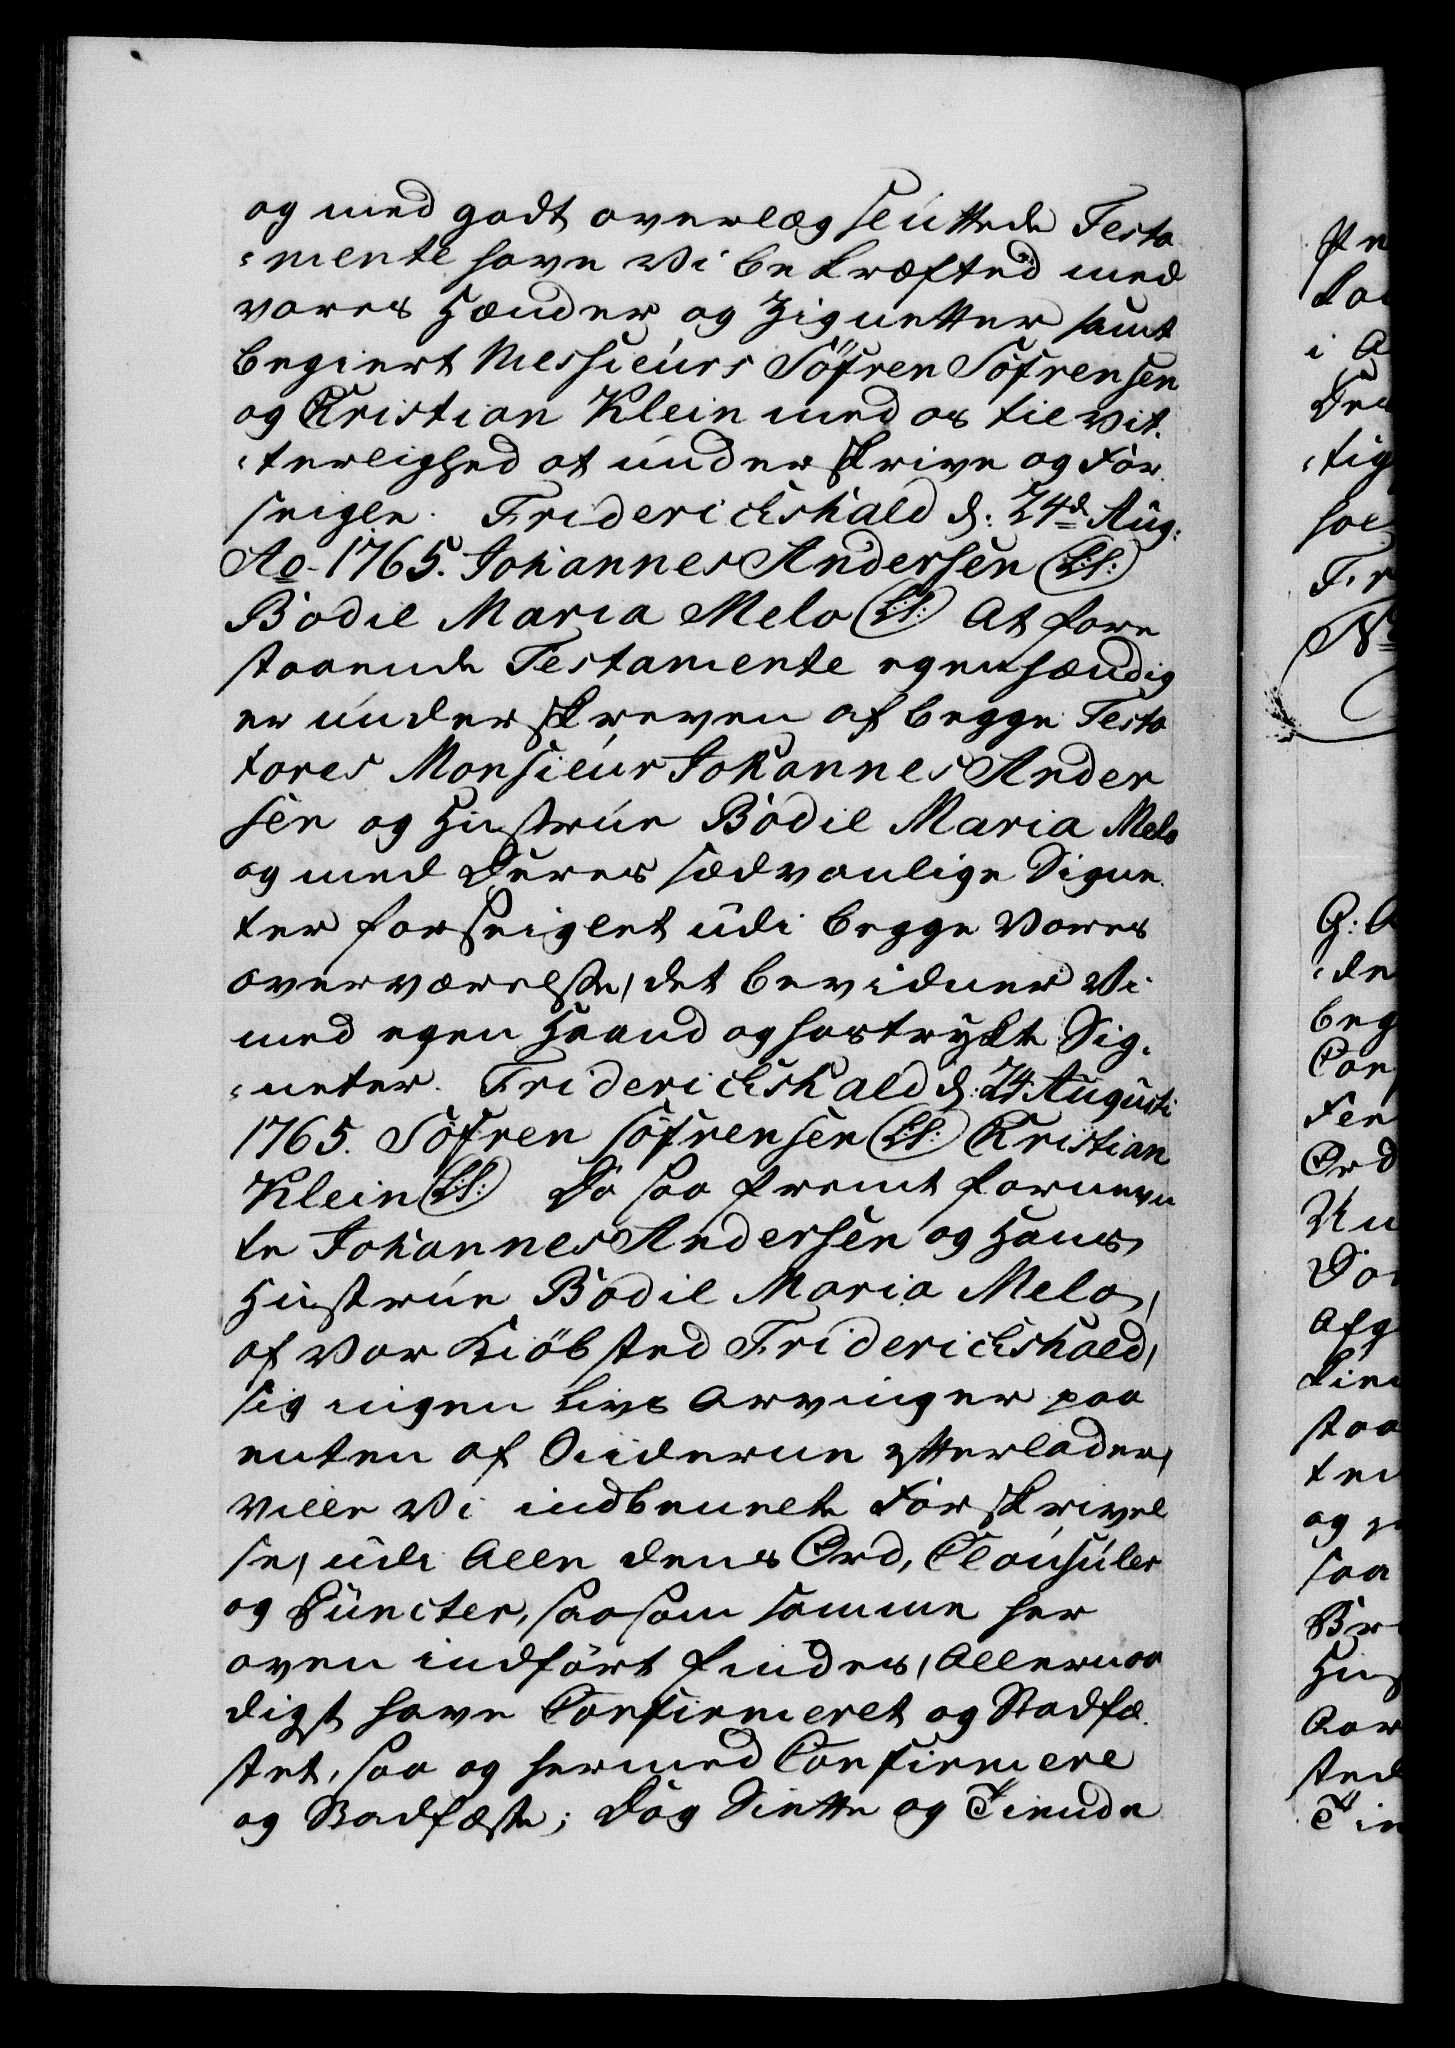 og med godt overlæg sluttede Testa
=mente have Vi bekræfted med
vores Hænder og Zignetter samt
begiert Messieurs Söfren Söfrensen
og Christian Klein med os til vit.
=terlighed at underskrive og For
seigle. Friderichshald d: 24d Aug:
Ao. 1765. Johannes Andersen (L:S:)
Bodil Maria Melo (L:S:) At fore
staaende Testamente egenhændig
er underskreven af begge Testa
tores Monsieur Johannes Ander
sen og Hustrue Bodil Maria Melo
og med Deres sædvanlige Signe
ter forseiglet udi begge Vores
overværelse, det bevidner Vi
med egen Haand og hostrykte Sig.
=neter. Friderichshald d: 24 Augusti
1765. Söfren Söfrensen (L:S:) Christian
Klein (L:S:) Da saa fremt fornevn
te Johannes Andersen og Hans
Hustrue Bodil Maria Melo,
af Vor Kiöbsted Friderichshald,
sig ingen Livs Arvinger paa
enten af Siiderne efterlader,
ville Vi indbemelte Forskrivel
se, udi Alle dens Ord, Clausuler
og Puncter, saasom samme her
oven indfört findes, Allernaa
digst have Confirmeret og Stadfæ
stet, saa og hermed Confirmere
og Stadfæste; Dog Siette og Tiende